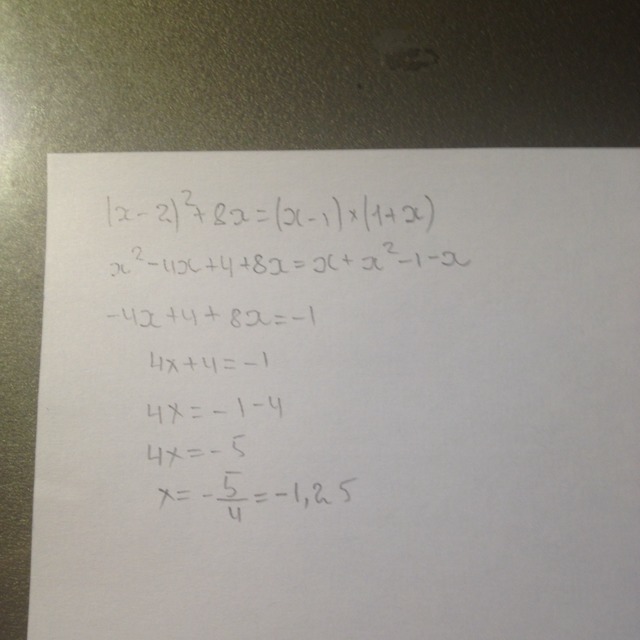 (x-2)²+8x=(x-1)×(1+x)
x²-4x+4+8x=x+x²-1-x
-4x+4+8x=-1
4x+4=-1
4x=-1-4
4x=-5
x=-5/4=-1,25